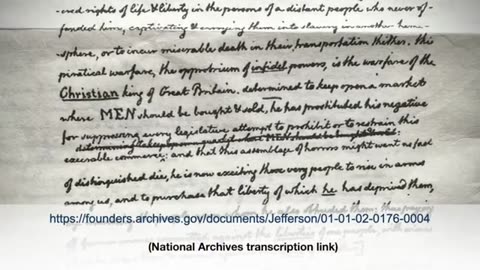 -cred rights of life & liberty in the persons of a distant people who never of-
fended him, captivating & carrying them into slavery in another hemi-
-sphere, or to incur miserable death in their transportation thither. this
piratical warfare, the opprobrium of infidel powers, is the warfare of the
Christian king of Great Britain. determined to keep open a market
where MEN should be bought & sold, he has prostituted his negative
for suppressing every legislative attempt to prohibit or to restrain this
determining to keep open a market where MEN should be bought & sold:
execrable commerce: and that this assemblage of horrors might want no fact
of distinguished die, he is now exciting those very people to rise in arms
among us, and to purchase that liberty of which he has deprived them,
https://founders.archives.gov/documents/Jefferson/01-01-02-0176-0004
(National Archives transcription link)